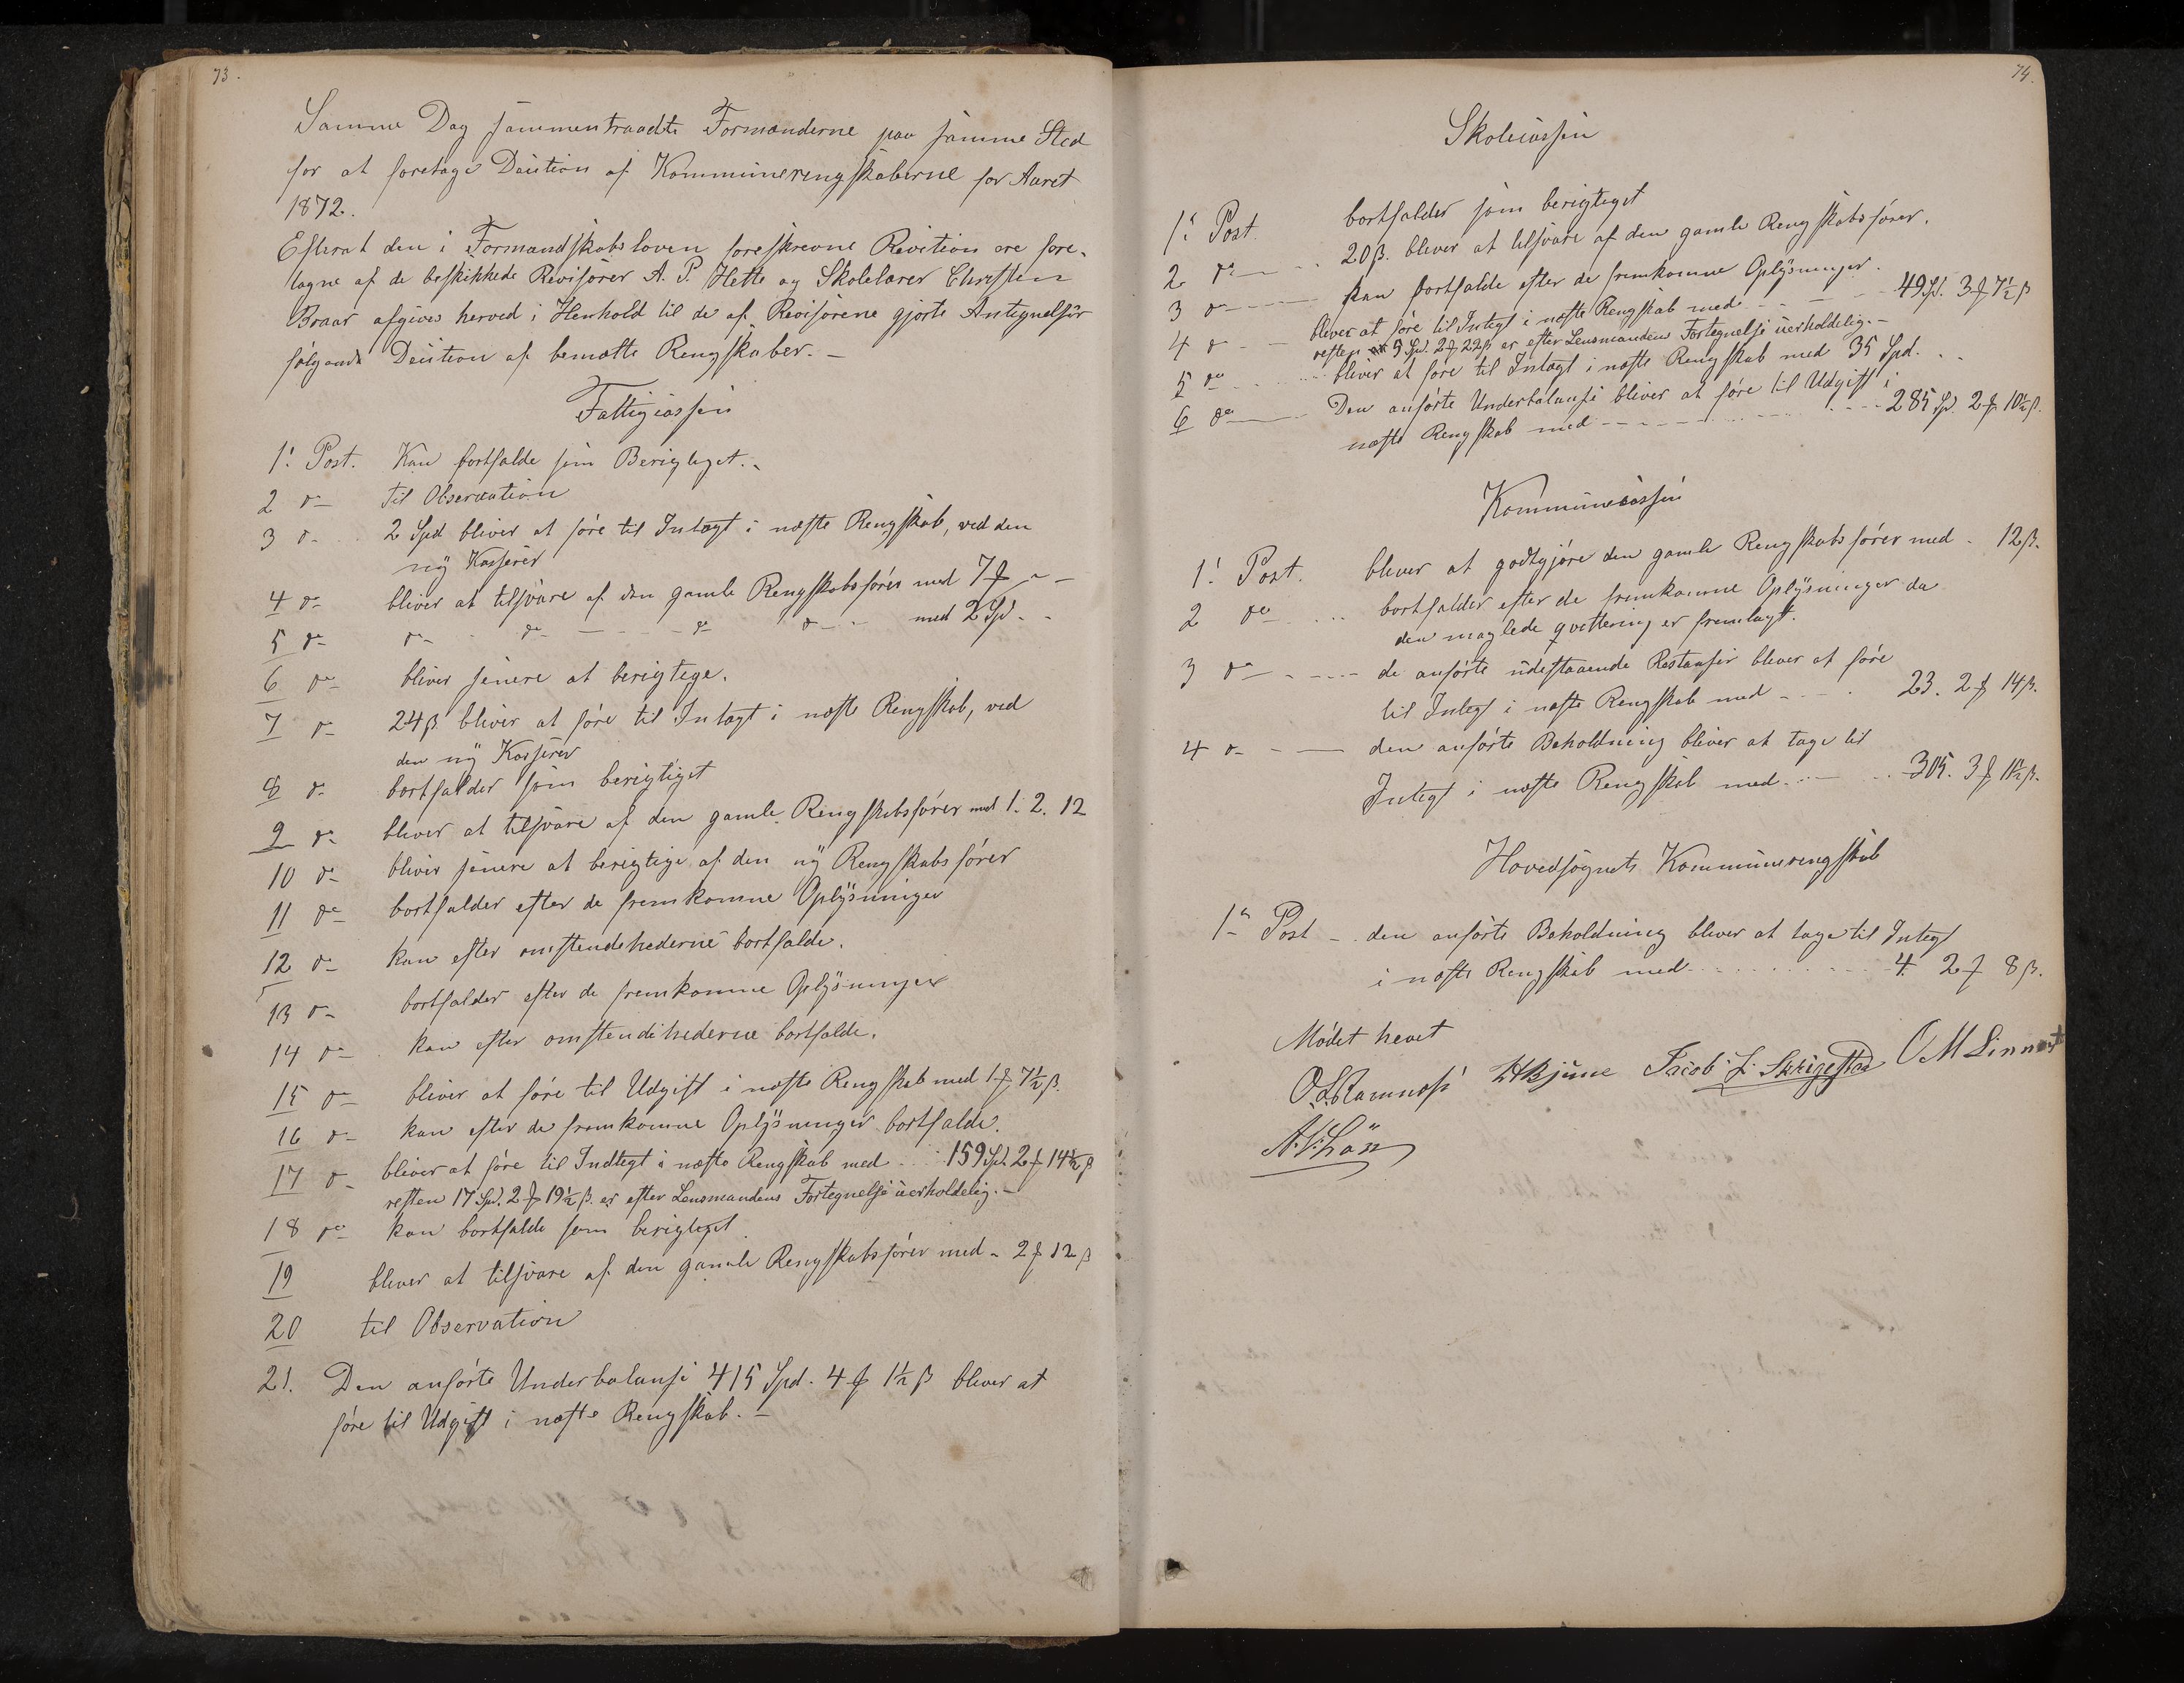 73.
Samme Dag sammentraadte Formænderne paa samme Sted
for at foretage Decition af Kommuneregnskaberne for Aaret
1872.
Efterat den i Formandskabsloven foreskrevne Revition ere fore-
tagne af de beskikkede Revisorer A. P. Hette og Skolelærer Christen
Braar afgives herved i Henhold til de af Revisorene gjorte Antegnelser
følgende Decition af bemælte Rengskaber. -
Fattigcassen
1ᵉ Post. Kan bortfalde som Berigtiget.
2 do Til Observation
3 do 2 Spd bliver at føre til Intægt i næste Rengskab, ved den
ny Kasserer
4 do bliver at tilsvare af den gamle Rengskabsfører med 7 ƒ - -
5 do do do do do med 2 Spd - -
6 do bliver senere at berigtige.
7 do 24 β bliver at føre til Intægt i næste Rengskab, ved
den ny Kasserer
8 do bortfalder som berigtiget
9 do bliver at tilsvare af den gamle Rengskabsfører med 1. 2. 12
10 do bliver senere at berigtige af den ny Rengskabsfører
11 do bortfalder efter de fremkomne Oplysninger
12 do kan efter omstendehederne bortfalde.
13 do bortfalder efter de fremkomne Oplysninger
14 do kan efter omstendihederne bortfalde.
15 do bliver at føre til Udgift i næste Rengskab med 1 ƒ 7½ β.
16 do kan efter de fremkomne Oplysninger bortfalde.
17 do bliver at føre til Indtegt i næste Rengskab med 159 Spd. 2 ƒ 14½ β
resten 17 Spd. 2 ƒ 19½ β. er efter Lensmandens Fortegnelse uerholdelig. -
18 do kan bortfalde som berigteget
19 bliver at tilsvare af den gamle Rengskabsfører med - 2 ƒ 12 β
20 til Observation
21. Den anførte Underbalanse 415 Spd. 4 ƒ 1½ β bliver at
føre til Udgift i næste Rengskab. -
74.
Skolecassen
1ᵉ Post bortfalder som berigteget
2 do 20 β. bliver at tilsvare af den gamle Rengskabsfører.
3 do kan bortfalde efter de fremkomne Oplysninger.
4 do bliver at føre til Integt i næste Rengskab med 49 Spd. 3 ƒ 7½ β
resten 5 Spd. 2 ƒ 22 β er efter Lensmandens Fortegnelse uerholdelig. -
5 do bliver at føre til Intægt i næste Rengskab med 35 Spd. . .
6 do Den anførte Underbalanse bliver at føre til Udgift i
næste Rengskab med 285 Spd. 2 ƒ 10½ β.
Kommunecassen
1ᵉ Post. bliver at godtgjøre den gamle Rengskabsfører med - 12 β.
2 do bortfalder efter de fremkomne Oplysninger da
den maglede qvittering er fremlagt.
3 do de anførte udestaaende Restanser bliver at føre
til Integt i næste Rengskab med 23. 2 ƒ 14 β.
4 do den anførte Beholdning bliver at tage til
Integt i næste Rengskab med 305. 3 ƒ 1½ β.
Hovedsognets Kommunerengskab
1ᵉ Post - den anførte Beholdning bliver at tage til Integt
i næste Rengskab med 4 2 ƒ 8 β.
Mødet hevet
O. L. Ramnæs Jacob L. Skrigestad O M Linnert